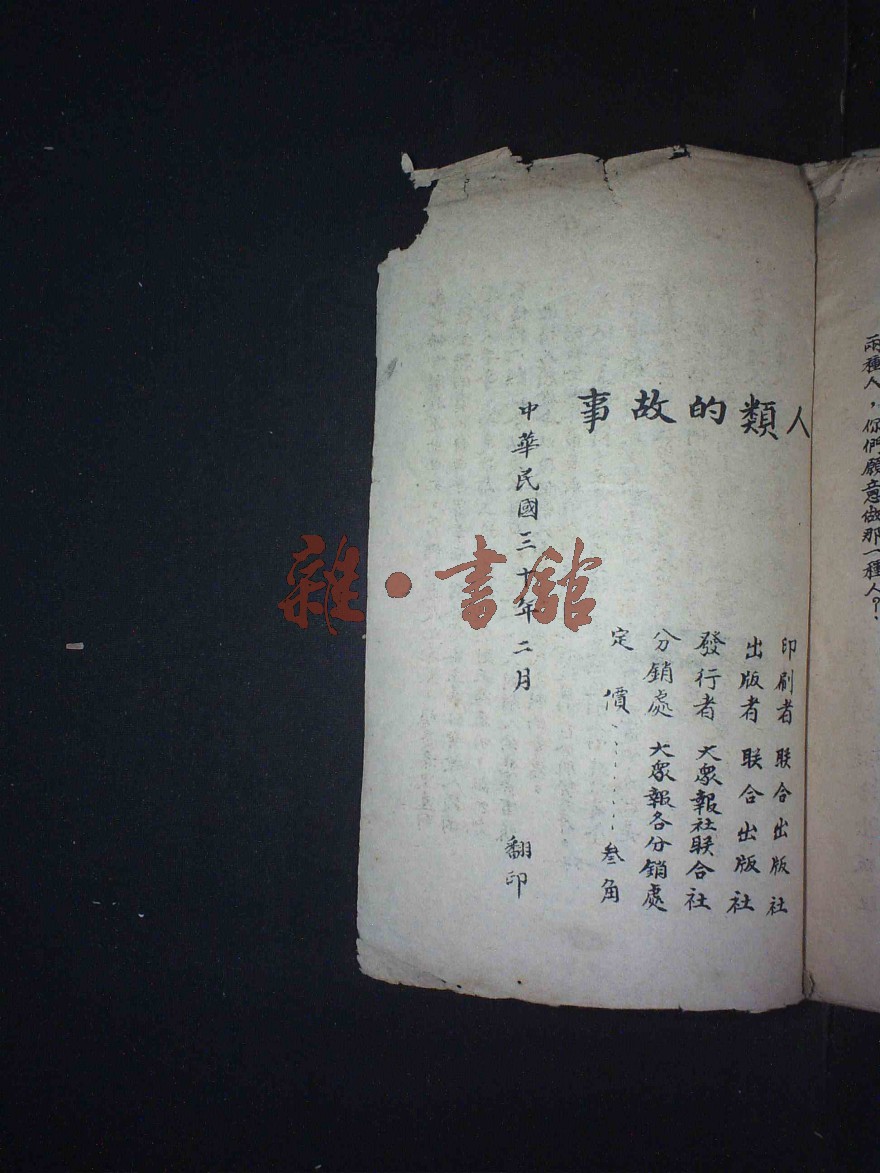 兩種人，你們願意做那一種人？
人類的故事
印刷者 联合出版社
出版者 联合出版社
發行者 大眾報社联合社
分銷處 大眾報各分銷處
定價、………叁角
中華民國三十年二月 翻印
雜·書館